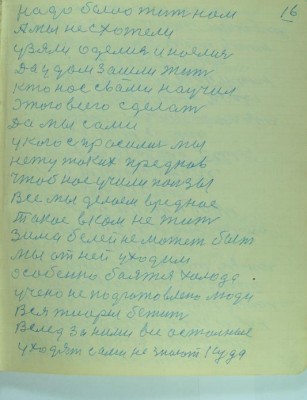 16
надо было жит нам
Амы не схотели
узяли оделися и поелися
Да у дом зашли жит
кто нас свами научил
этого всего сделат
Да мы сами
укого спрасилис мы
нету таких предков
чтоб нас учили
Все мы делаем вредное
такое в ком не жит
Зима белей не можеть быт
мы от ней уходим
особенно баятся холода
учено не подготовлено люди
Вся тварь бежит
Вслед за ними все остальные
уходят сами не знают куда